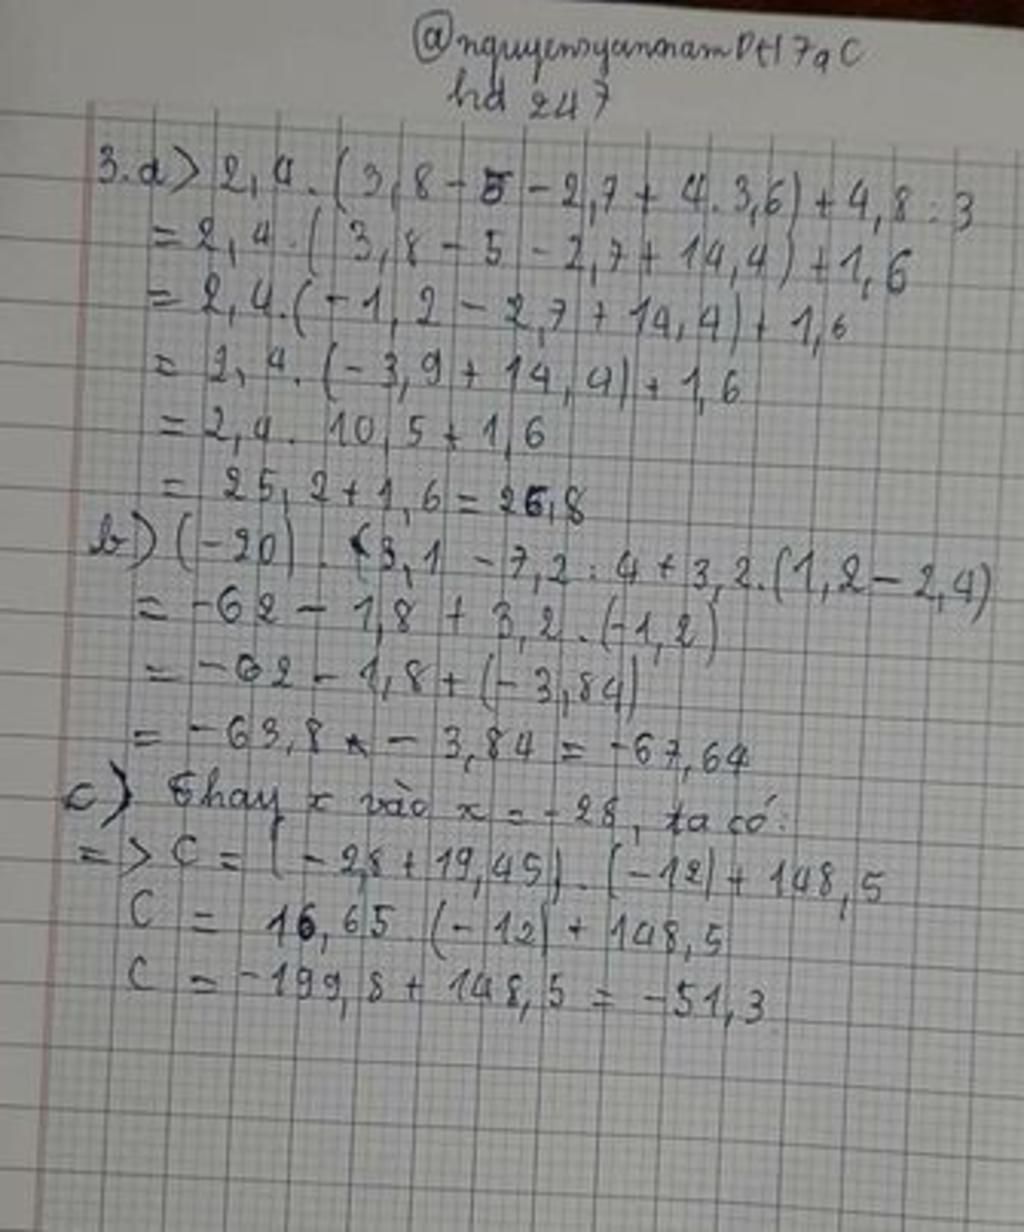 @nguyenvyannamDtH7aC
hd 247
3.a> 2,4.(3,8 - 5 - 2,7 + 4.3,6) + 4,8 : 3
= 2,4.(3,8 - 5 - 2,7 + 14,4) + 1,6
= 2,4.(-1,2 - 2,7 + 14,4) + 1,6
= 2,4.(-3,9 + 14,4) + 1,6
= 2,4. 10,5 + 1,6
= 25,2 + 1,6 = 26,8
b) (-20) . (3,1 - 7,2 : 4 + 3,2.(1,2 - 2,4)
= -62 - 1,8 + 3,2.(-1,2)
= -62 - 1,8 + (-3,84)
= -63,8 - 3,84 = -67,64
c) Thay x vào x = -2,8, ta có:
=> C = (-2,8 + 19,45).(-12) + 148,5
C = 16,65.(-12) + 148,5
C = -199,8 + 148,5 = -51,3